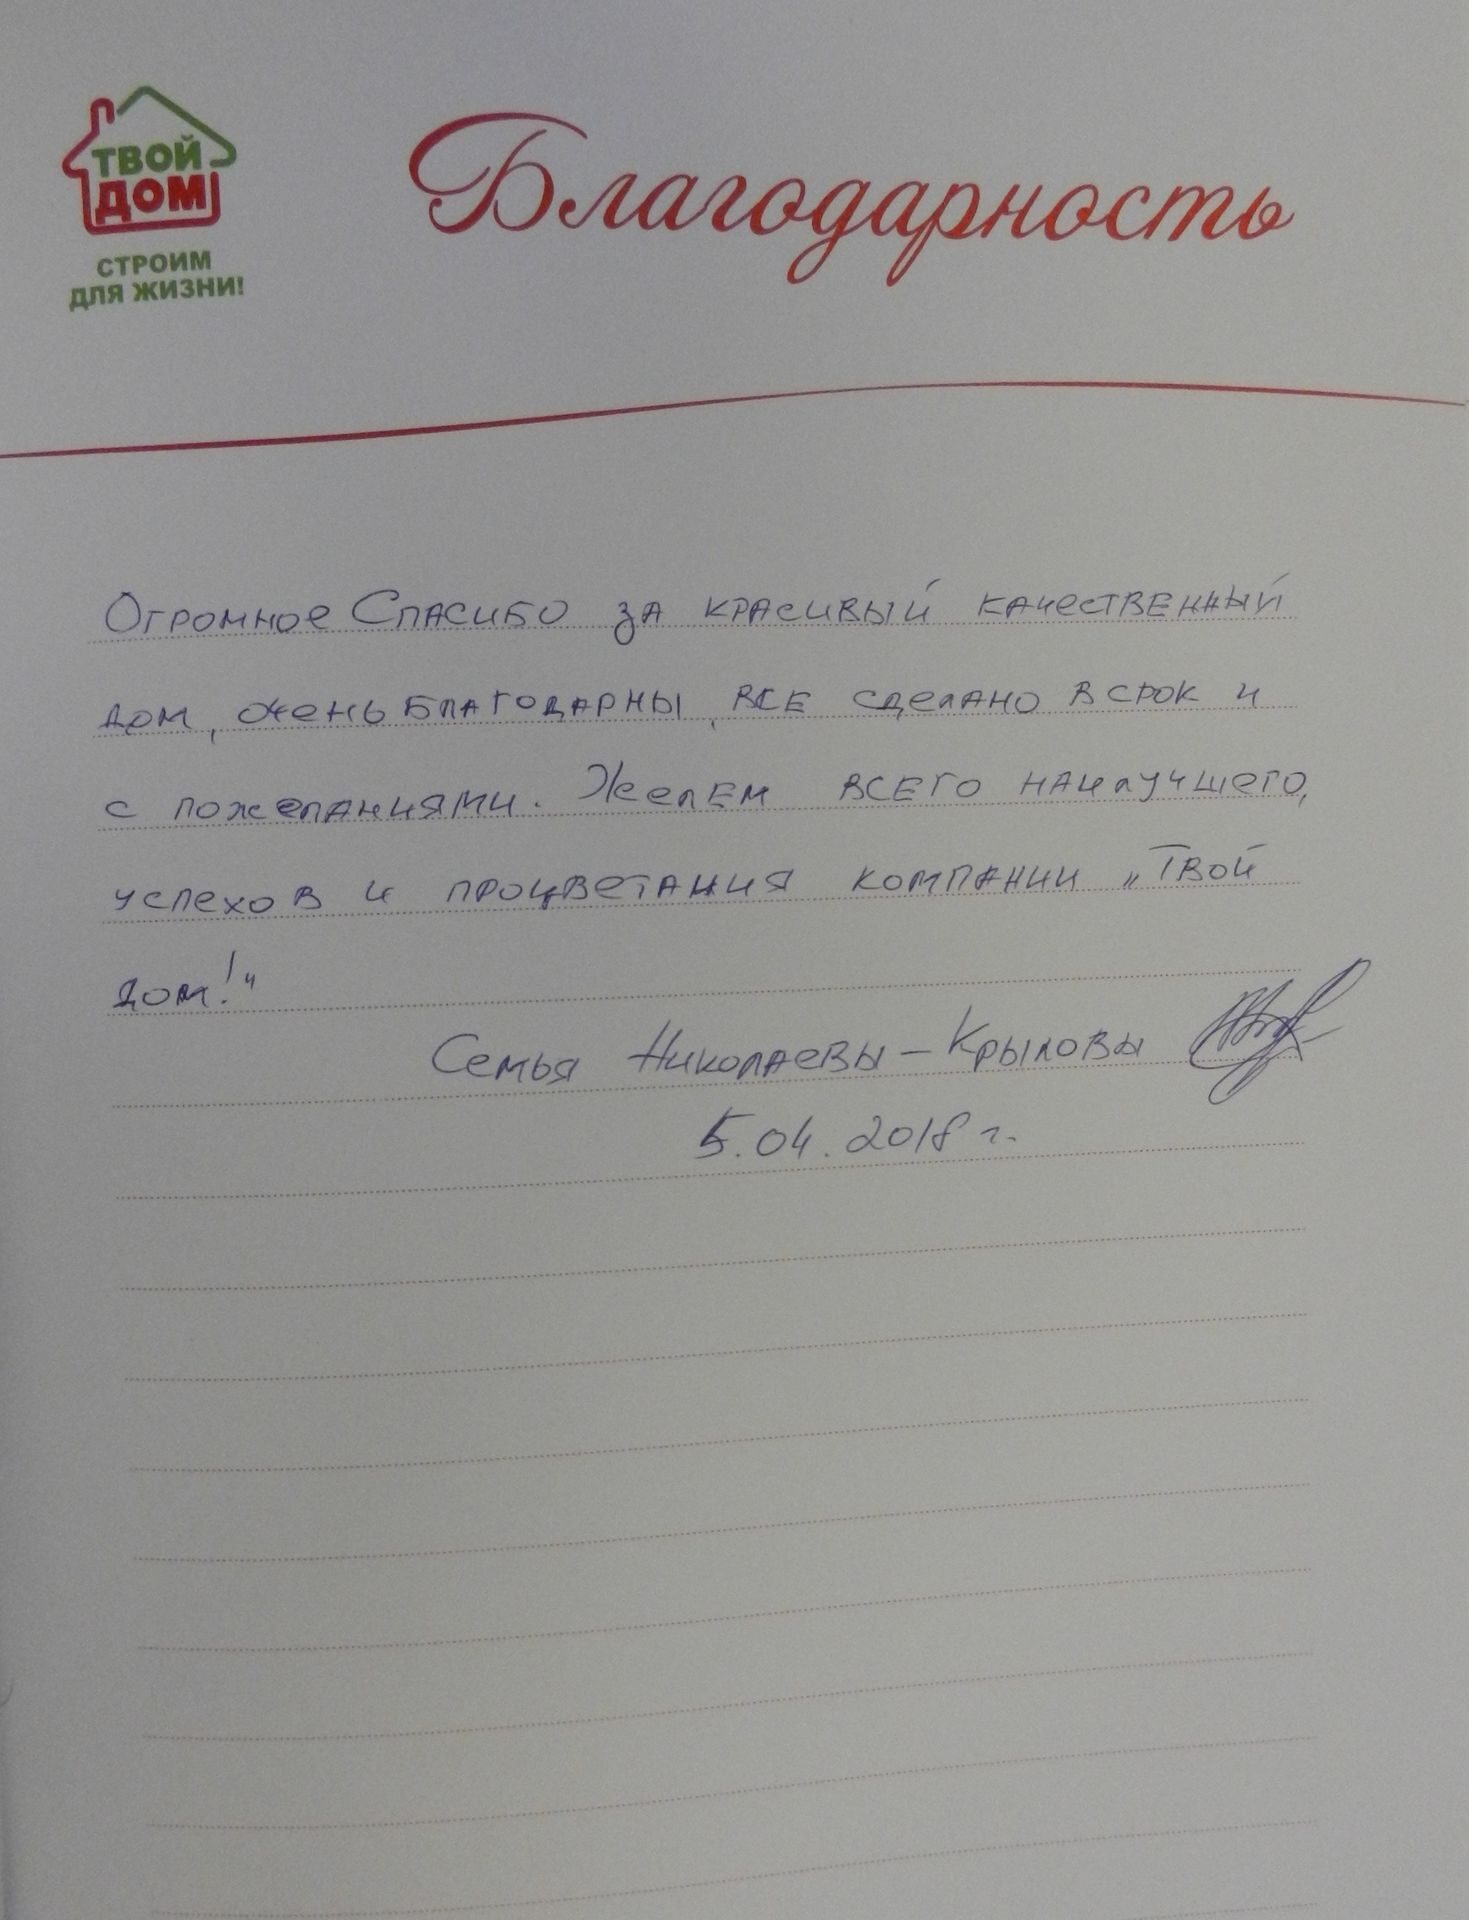 ТВОЙ
ДОМ
СТРОИМ
ДЛЯ ЖИЗНИ!
Благодарность
Огромное Спасибо за красивый качественный
дом, очень благодарны, все сделано в срок и
с пожеланиями. Желем всего наилучшего,
успехов и процветания компании „Твой
дом!“
Семья Николаевы – Крыловы
5.04.2018 г.